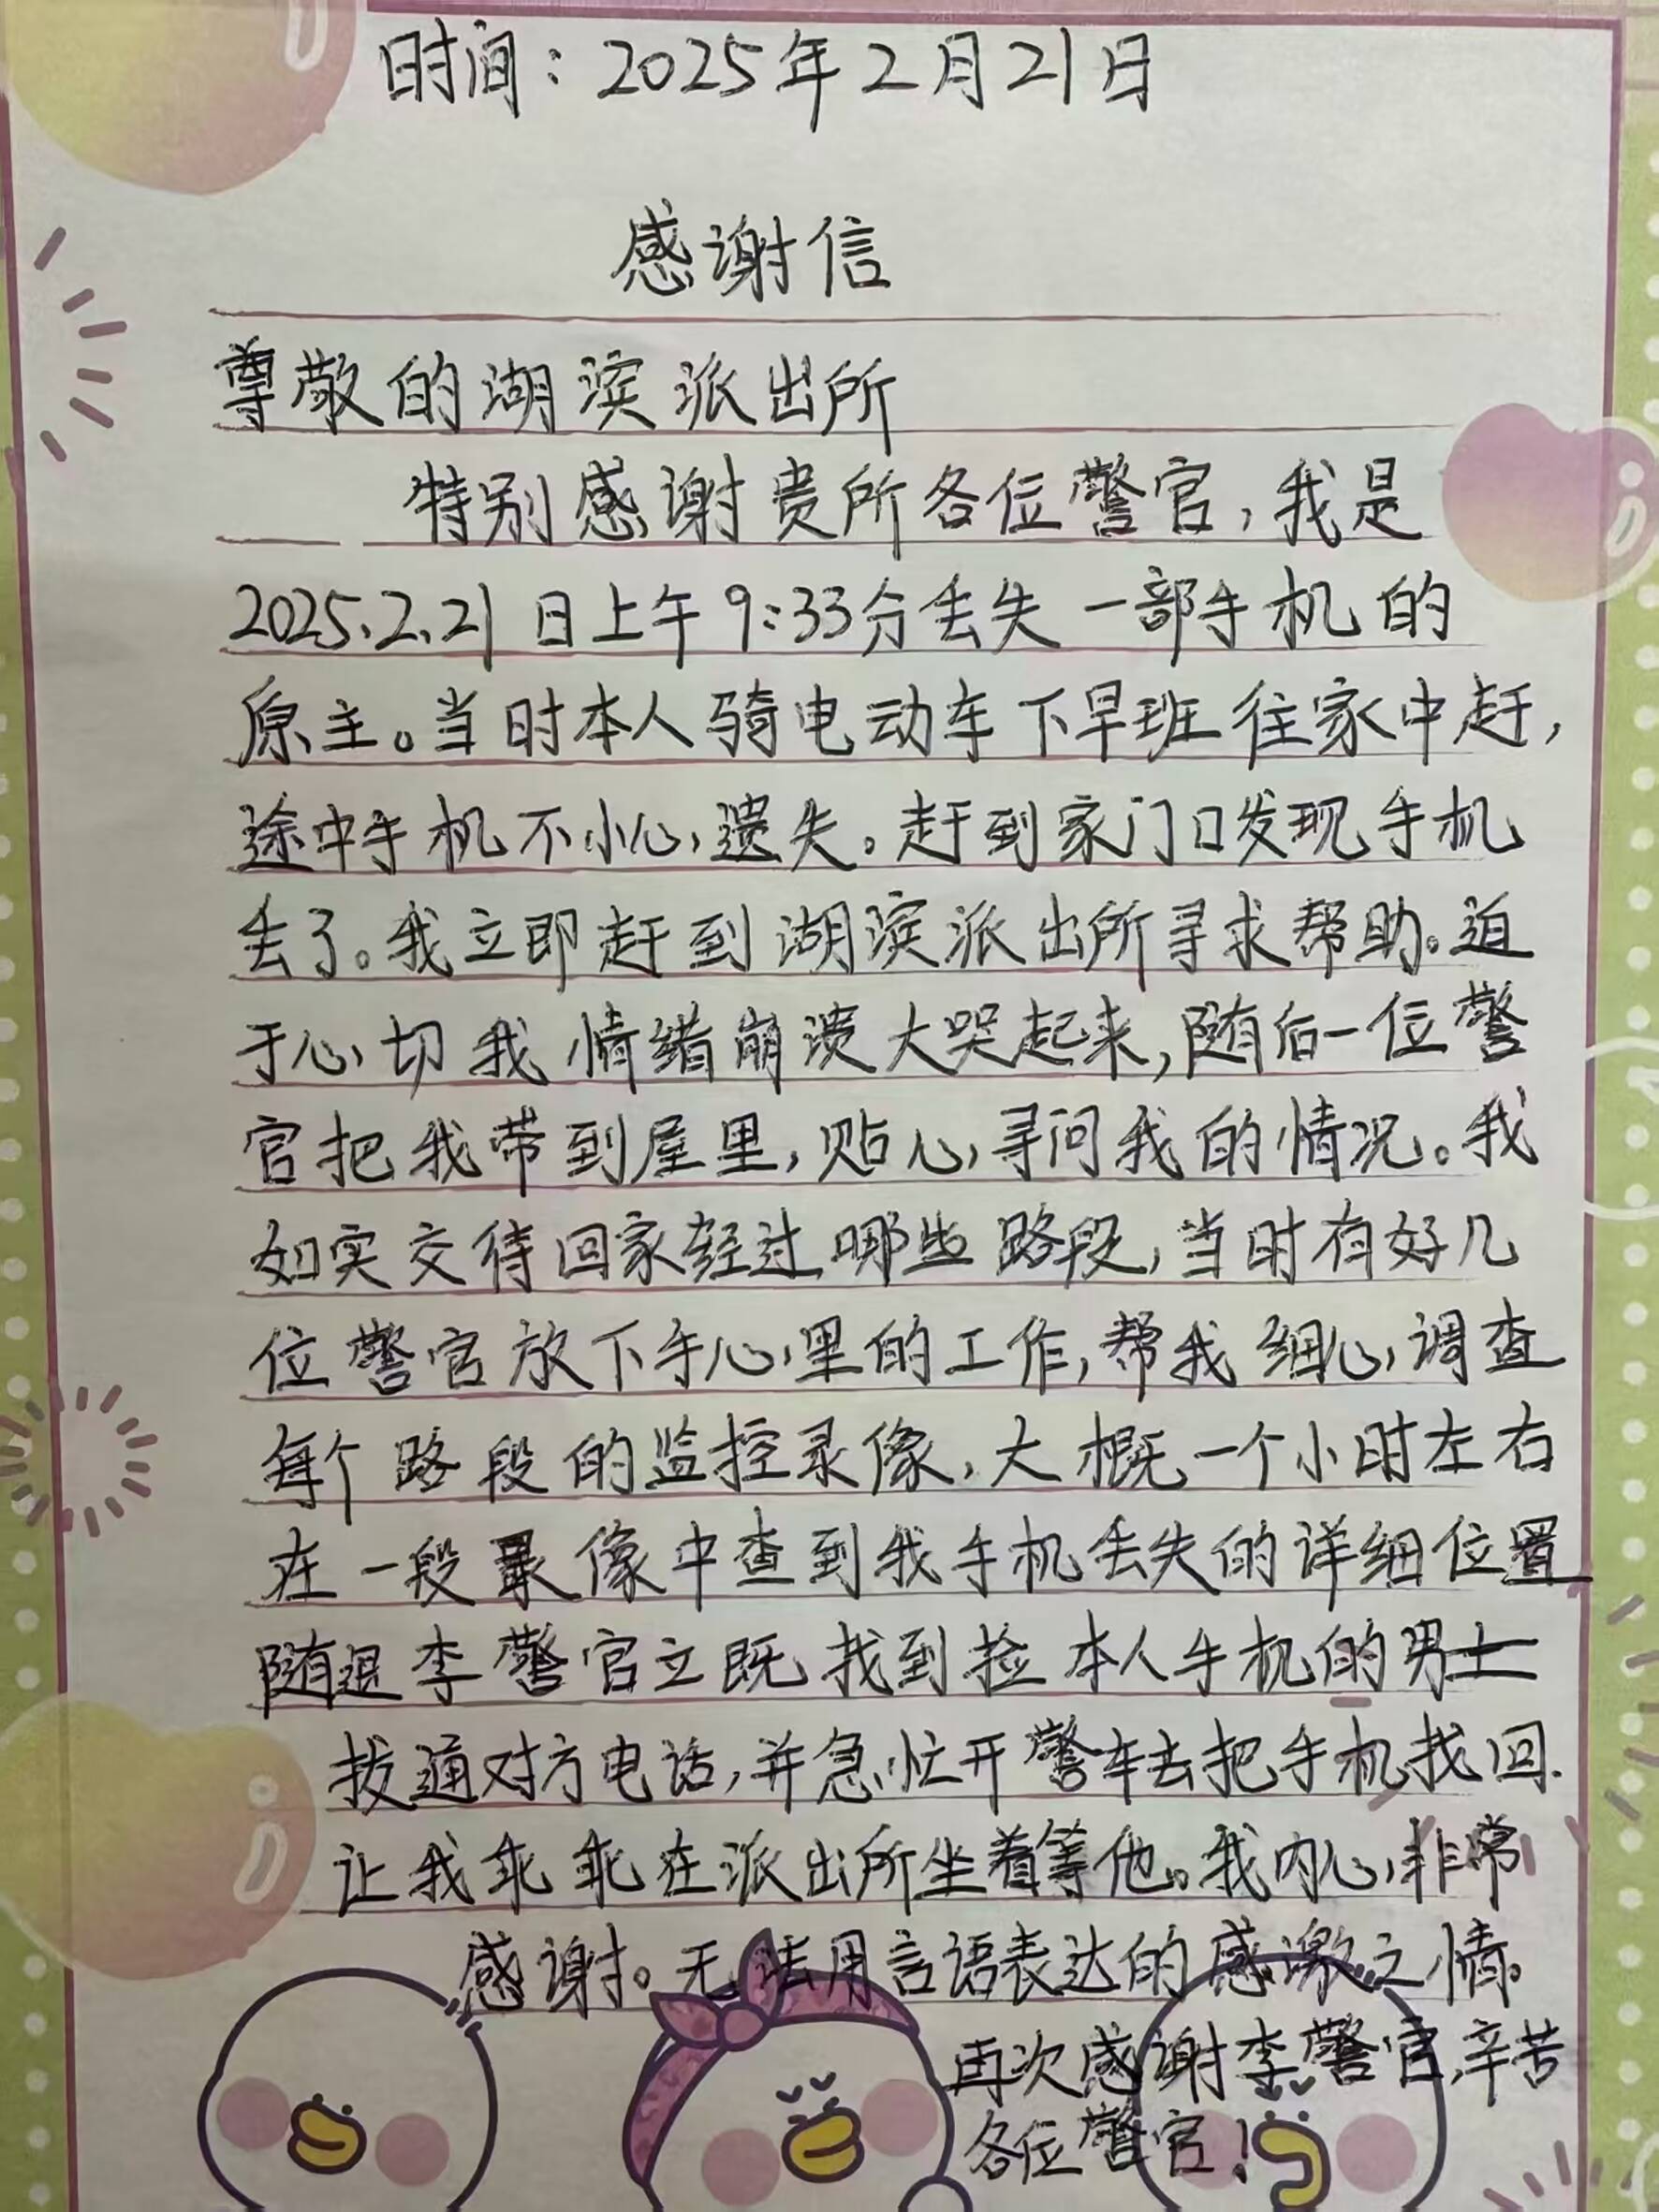 时间：2025年2月21日
感谢信
尊敬的湖滨派出所
特别感谢贵所各位警官，我是
2025.2.21日上午9:33分丢失一部手机的
原主。当时本人骑电动车下早班往家中赶，
途中手机不小心遗失。赶到家门口发现手机
丢了。我立即赶到湖滨派出所寻求帮助。迫
于心切我情绪崩溃大哭起来，随后一位警
官把我带到屋里，贴心寻问我的情况。我
如实交待回家经过哪些路段，当时有好几
位警官放下手心里的工作，帮我细心调查
每个路段的监控录像，大概一个小时左右
在一段录像中查到我手机丢失的详细位置
随退李警官立既找到捡本人手机的男士
拔通对方电话，并急忙开警车去把手机找回.
让我乖乖在派出所坐着等他。我内心非常
感谢。无法用言语表达的感激之情。
再次感谢李警官,辛苦
各位警官！